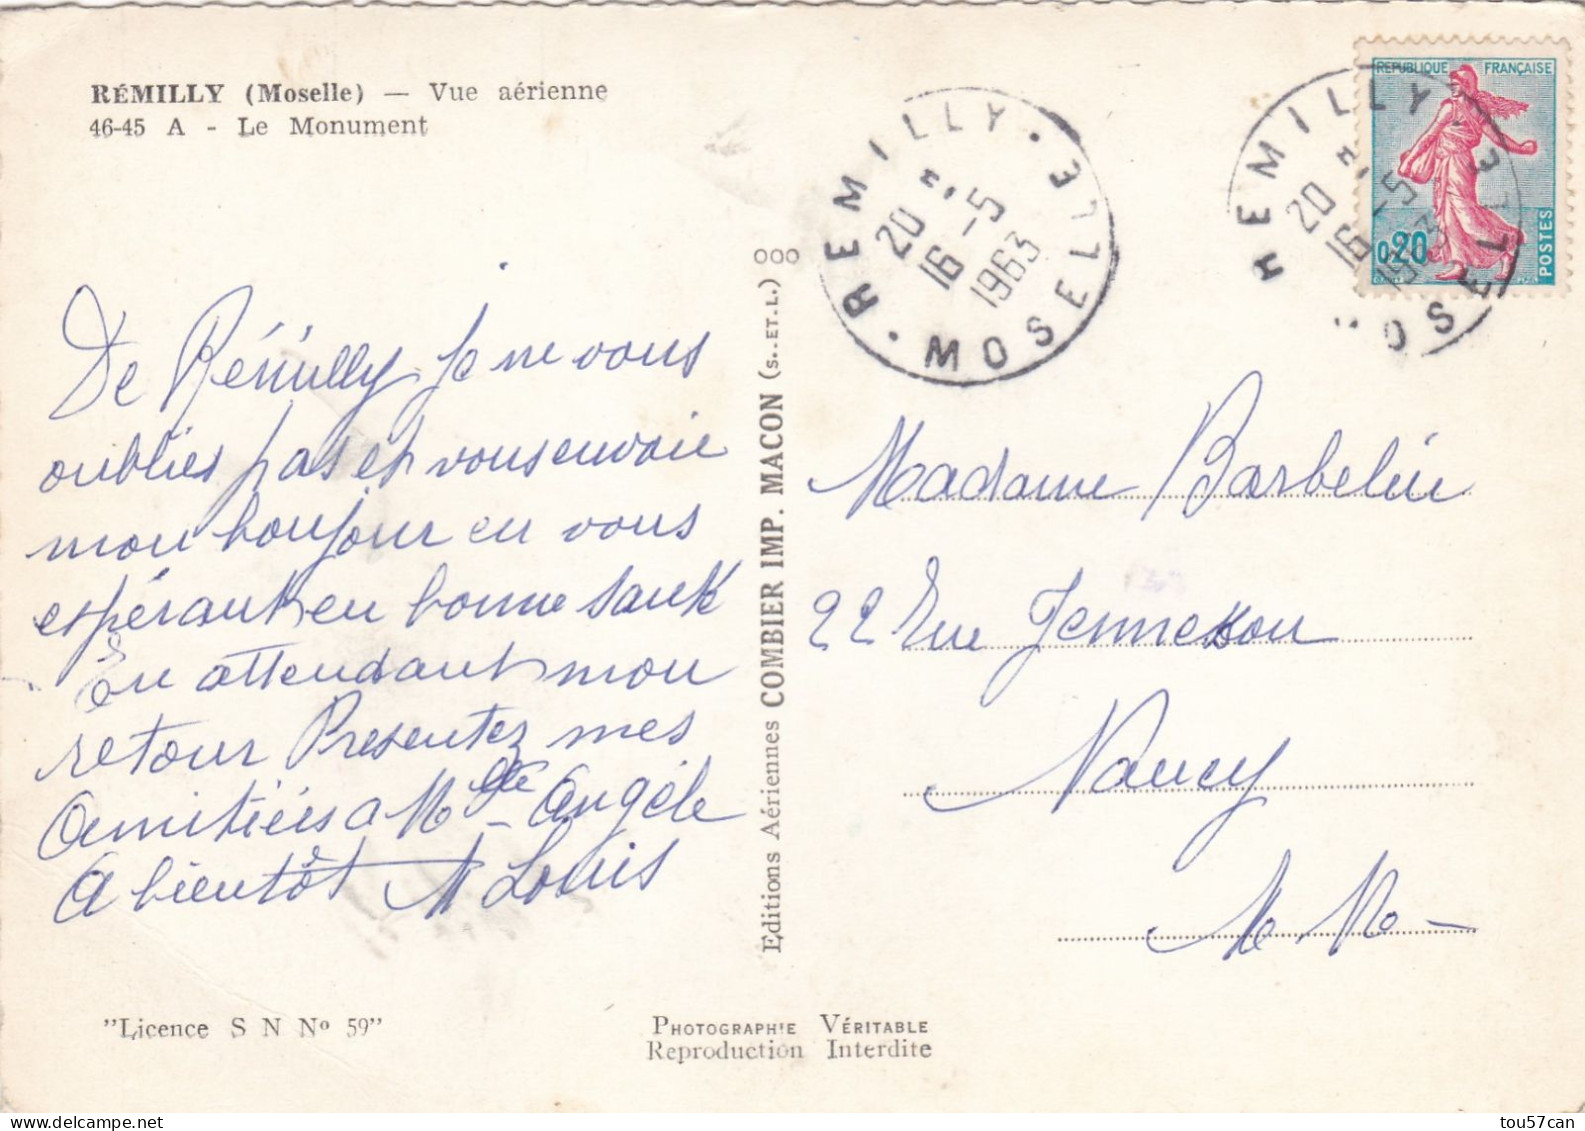 RÉMILLY (Moselle) — Vue aérienne
46-45 A - Le Monument
De Rémilly Je ne vous
oublies pas et vous envoie
mon bonjour en vous
espérant en bonne santé
En attendant mon
retour Presentez mes
Amitiées a Mlle Angèle
A bientôt M Louis
"Licence S N No 59"
Editions Aériennes COMBIER IMP. MACON (S.-ET-L.)
000
REMILLY · MOSELLE ·
20 H
16 -5
1963
REMILLY · MOSELLE
20 H
16 -5
1963
REPUBLIQUE FRANÇAISE
0,20
POSTES
Madame Barbelin
22 Rue Jennesson
Nancy
M M
PHOTOGRAPHIE VÉRITABLE
Reproduction Interdite
tou57can